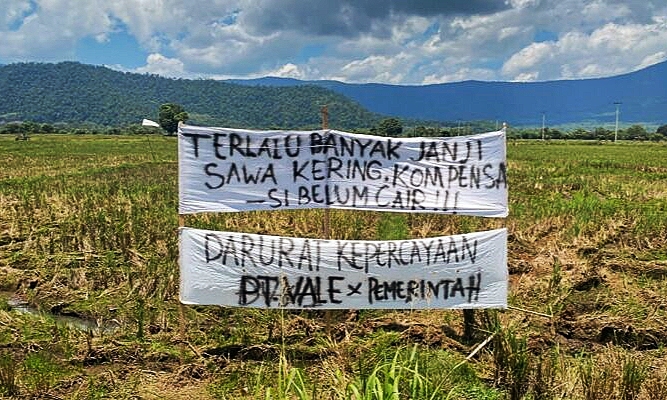 TERLALU BANYAK JANJI
SAWA KERING. KOMPENSA
-SI BELUM CAIR!!!
DARURAT KEPERCAYAAN
PT.VALE x PEMERINTAH